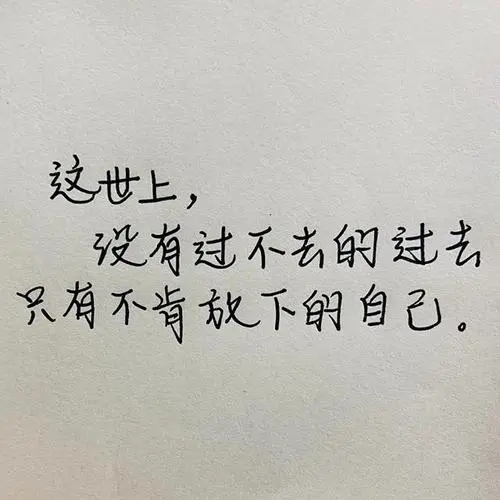 这世上，
没有过不去的过去
只有不肯放下的自己。